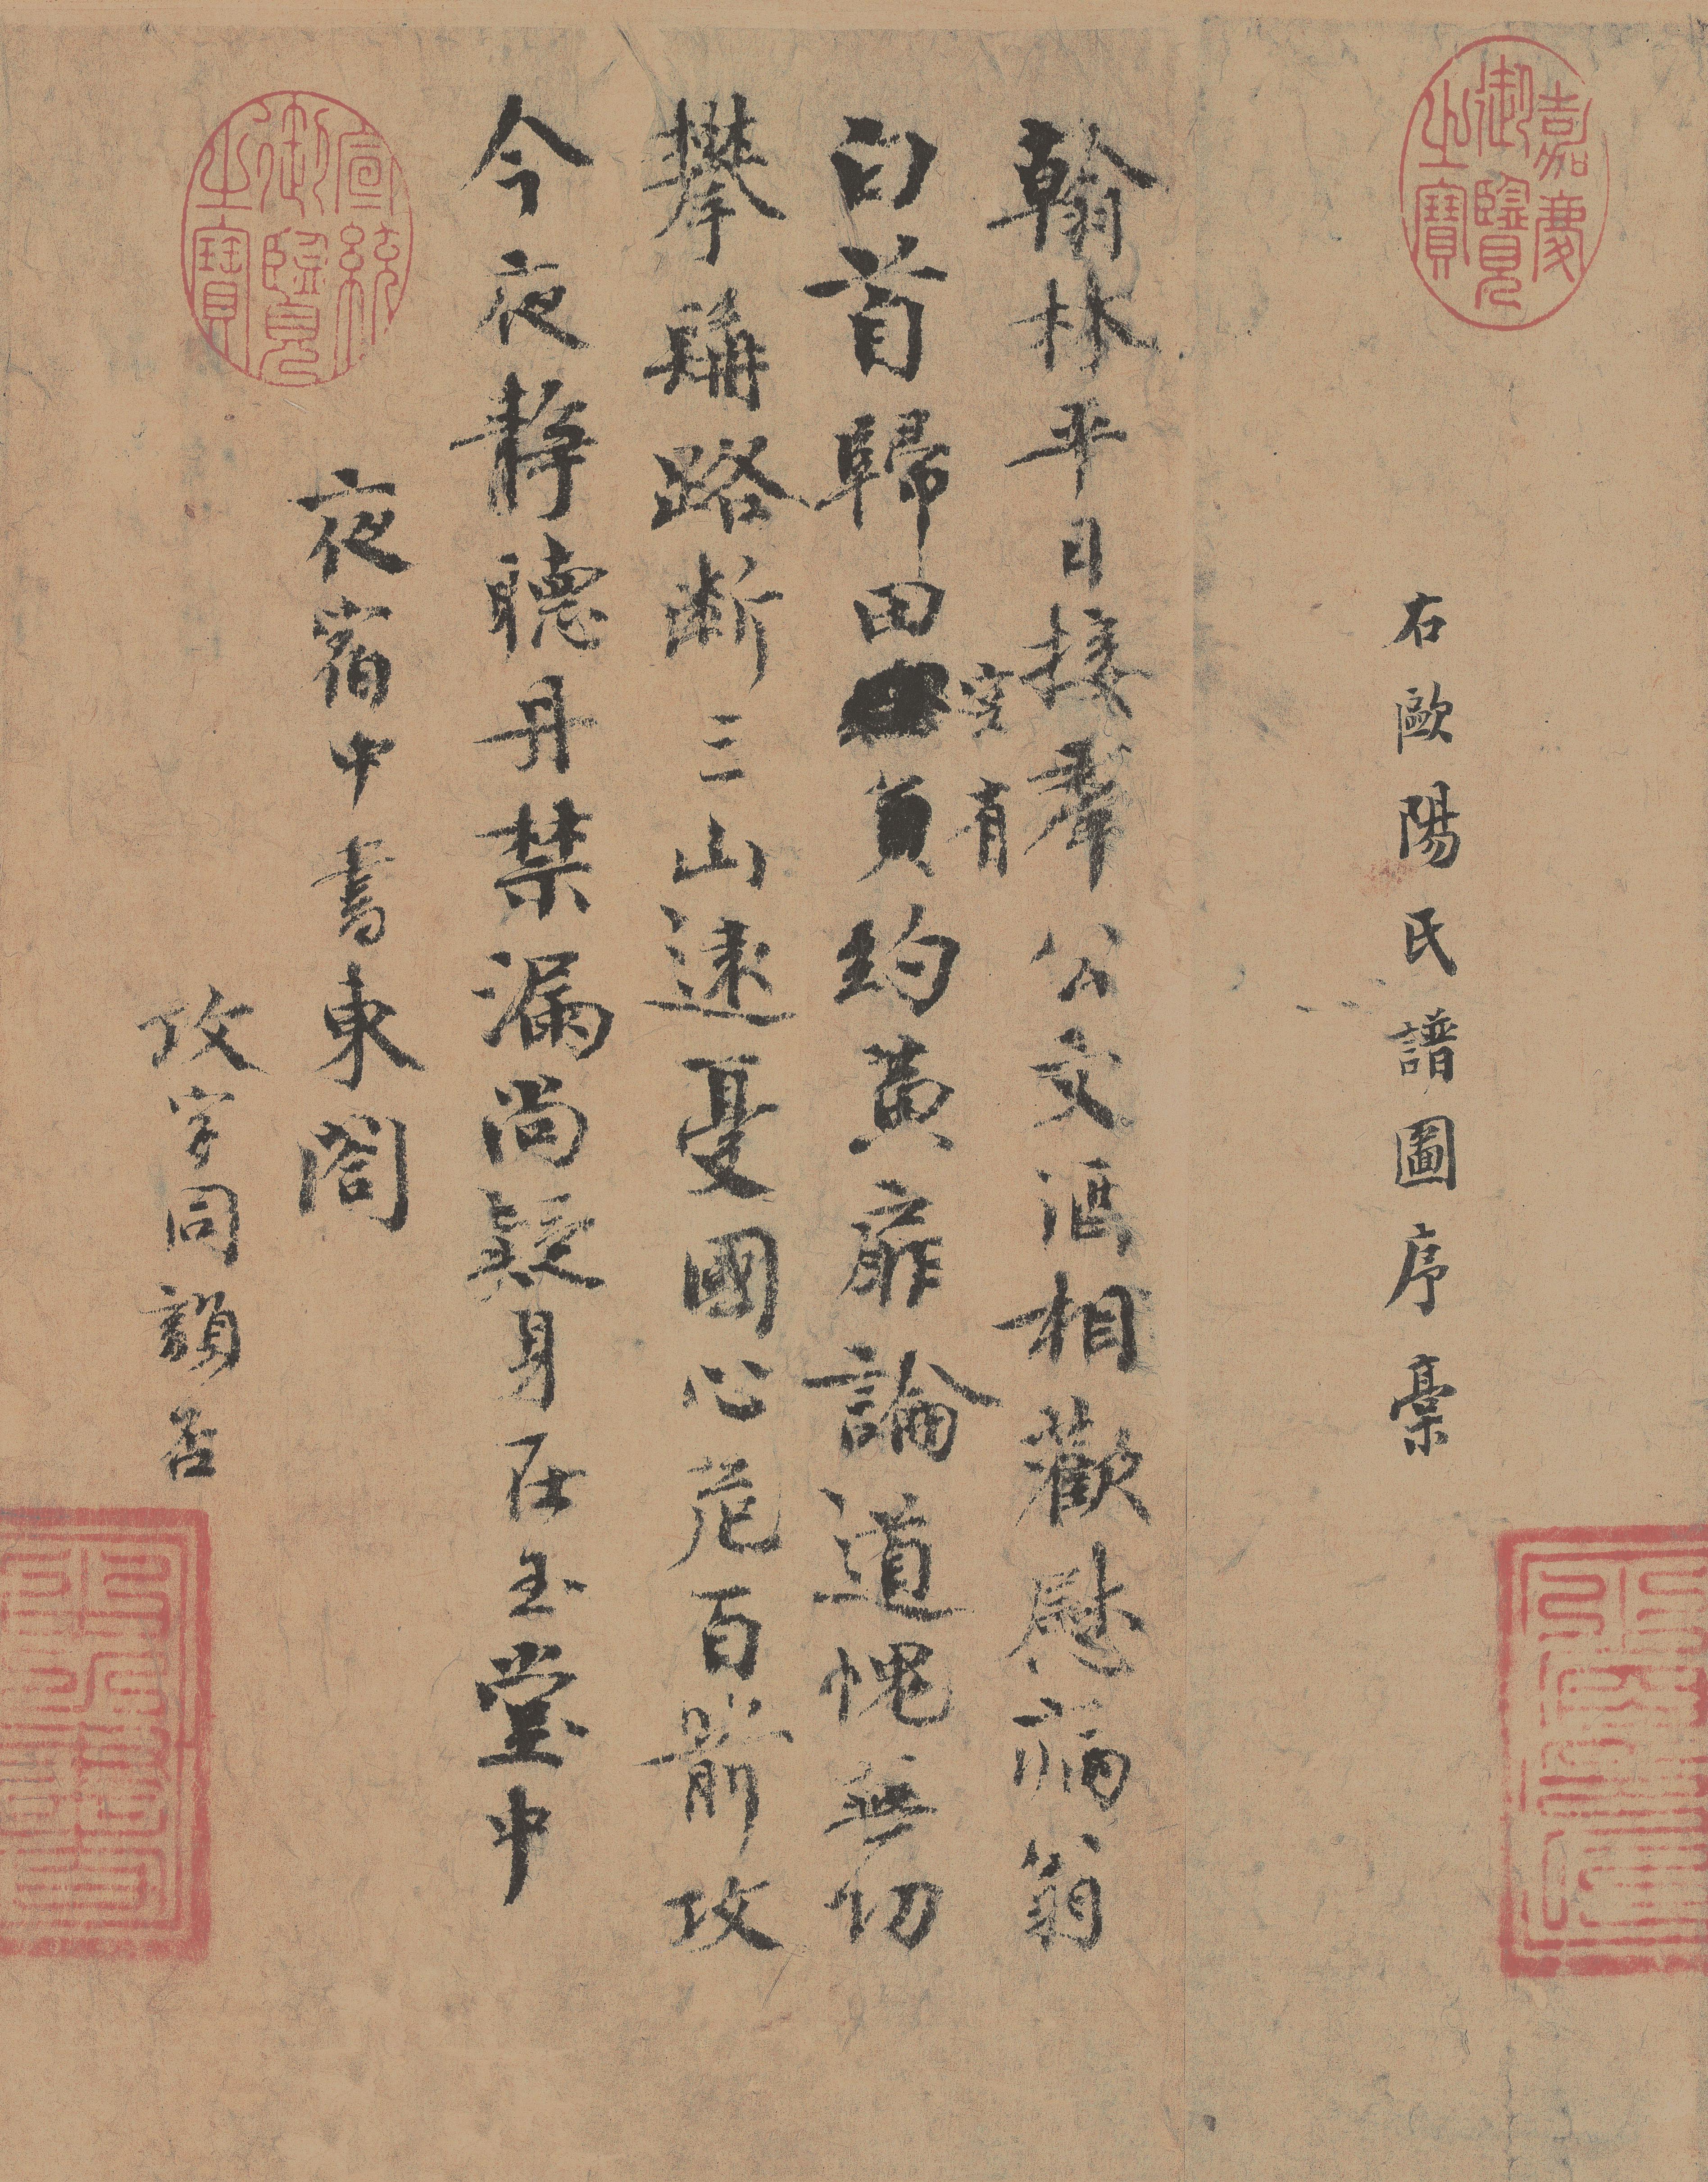 嘉慶御覽之寶
右歐陽氏譜圖序藁
翰林平日接羣公文酒相歡慰病翁
白首歸田空有負約黃扉論道愧無功
攀髯路斷三山遠憂國心危百箭攻
今夜靜聽丹禁漏尚疑身在玉堂中
夜宿中書東閤
攻字同韻否
宣統御覽之寶